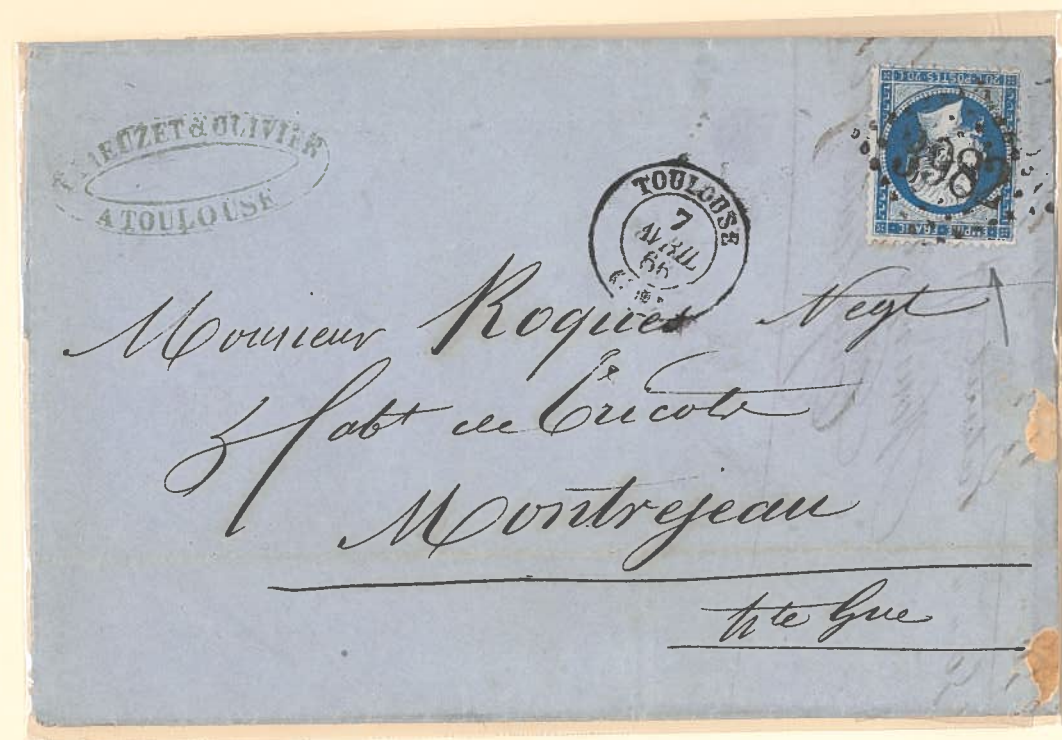 & OLIVIER
A TOULOUSE
TOULOUSE
7
AVRIL
66
3982
20 C. POSTES 20 C.
EMPIRE FRANC
Monsieur Roques Negt
fabt de Tricots
Montrejeau
hte Gne